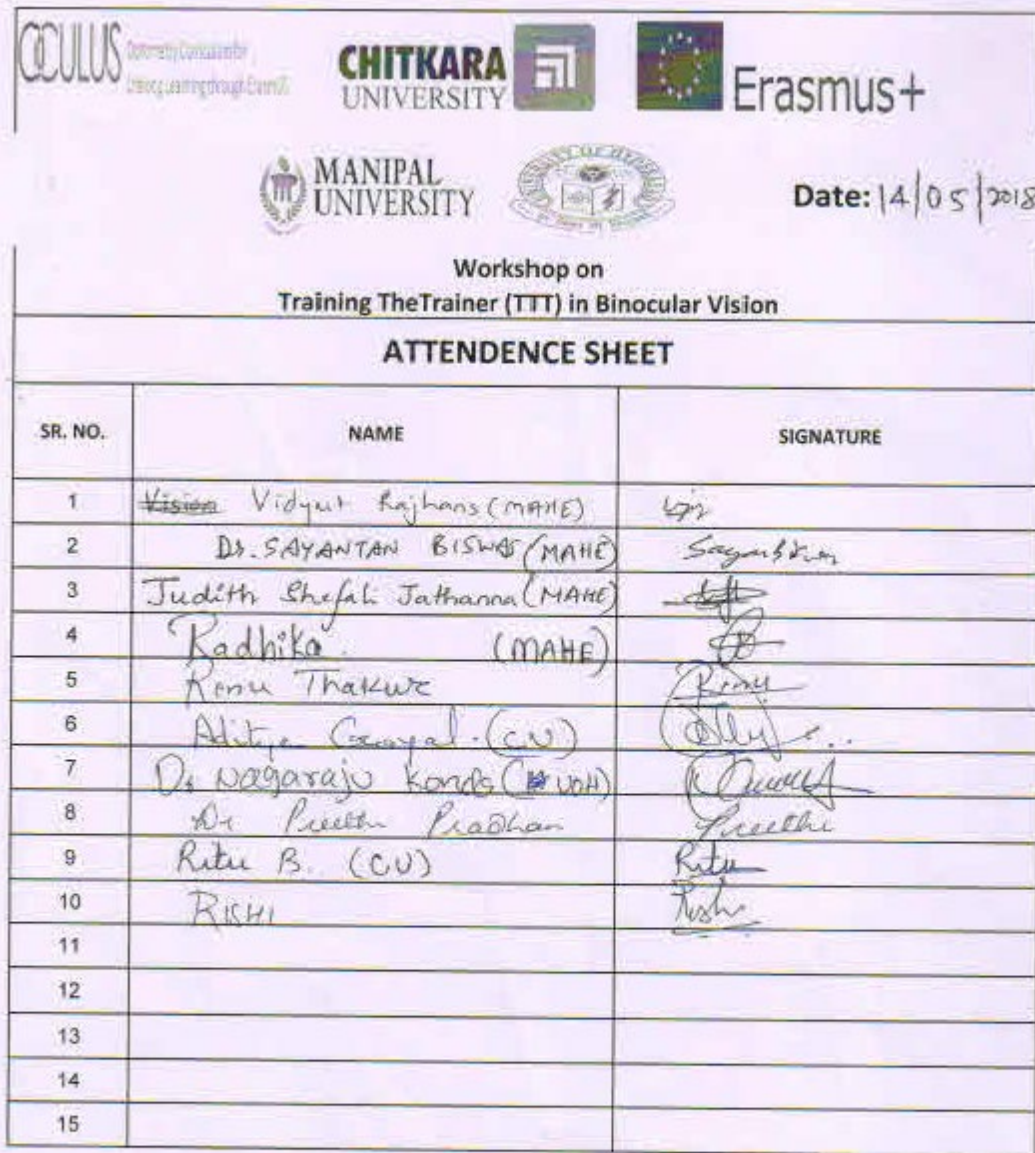 OCULUS
CHITKARA
UNIVERSITY
Erasmus+
MANIPAL
UNIVERSITY
Date: 14/05/2018
Workshop on
Training TheTrainer (TTT) in Binocular Vision
ATTENDENCE SHEET
SR. NO. NAME SIGNATURE
1 Vision Vidyut Rajhans (MAHE)
2 Dr. SAYANTAN BISWAS (MAHE)
3 Judith Shefali Jathanna (MAHE)
4 Radhika. (MAHE)
5 Renu Thakur Renu
6 Aditya Goyal. (CU)
7 Dr Nagaraju Konda (UOH)
8 Dr Preethi Pradhan Preethi
9 Ritu B. (CU) Ritu
10 RISHI Rishi
11
12
13
14
15